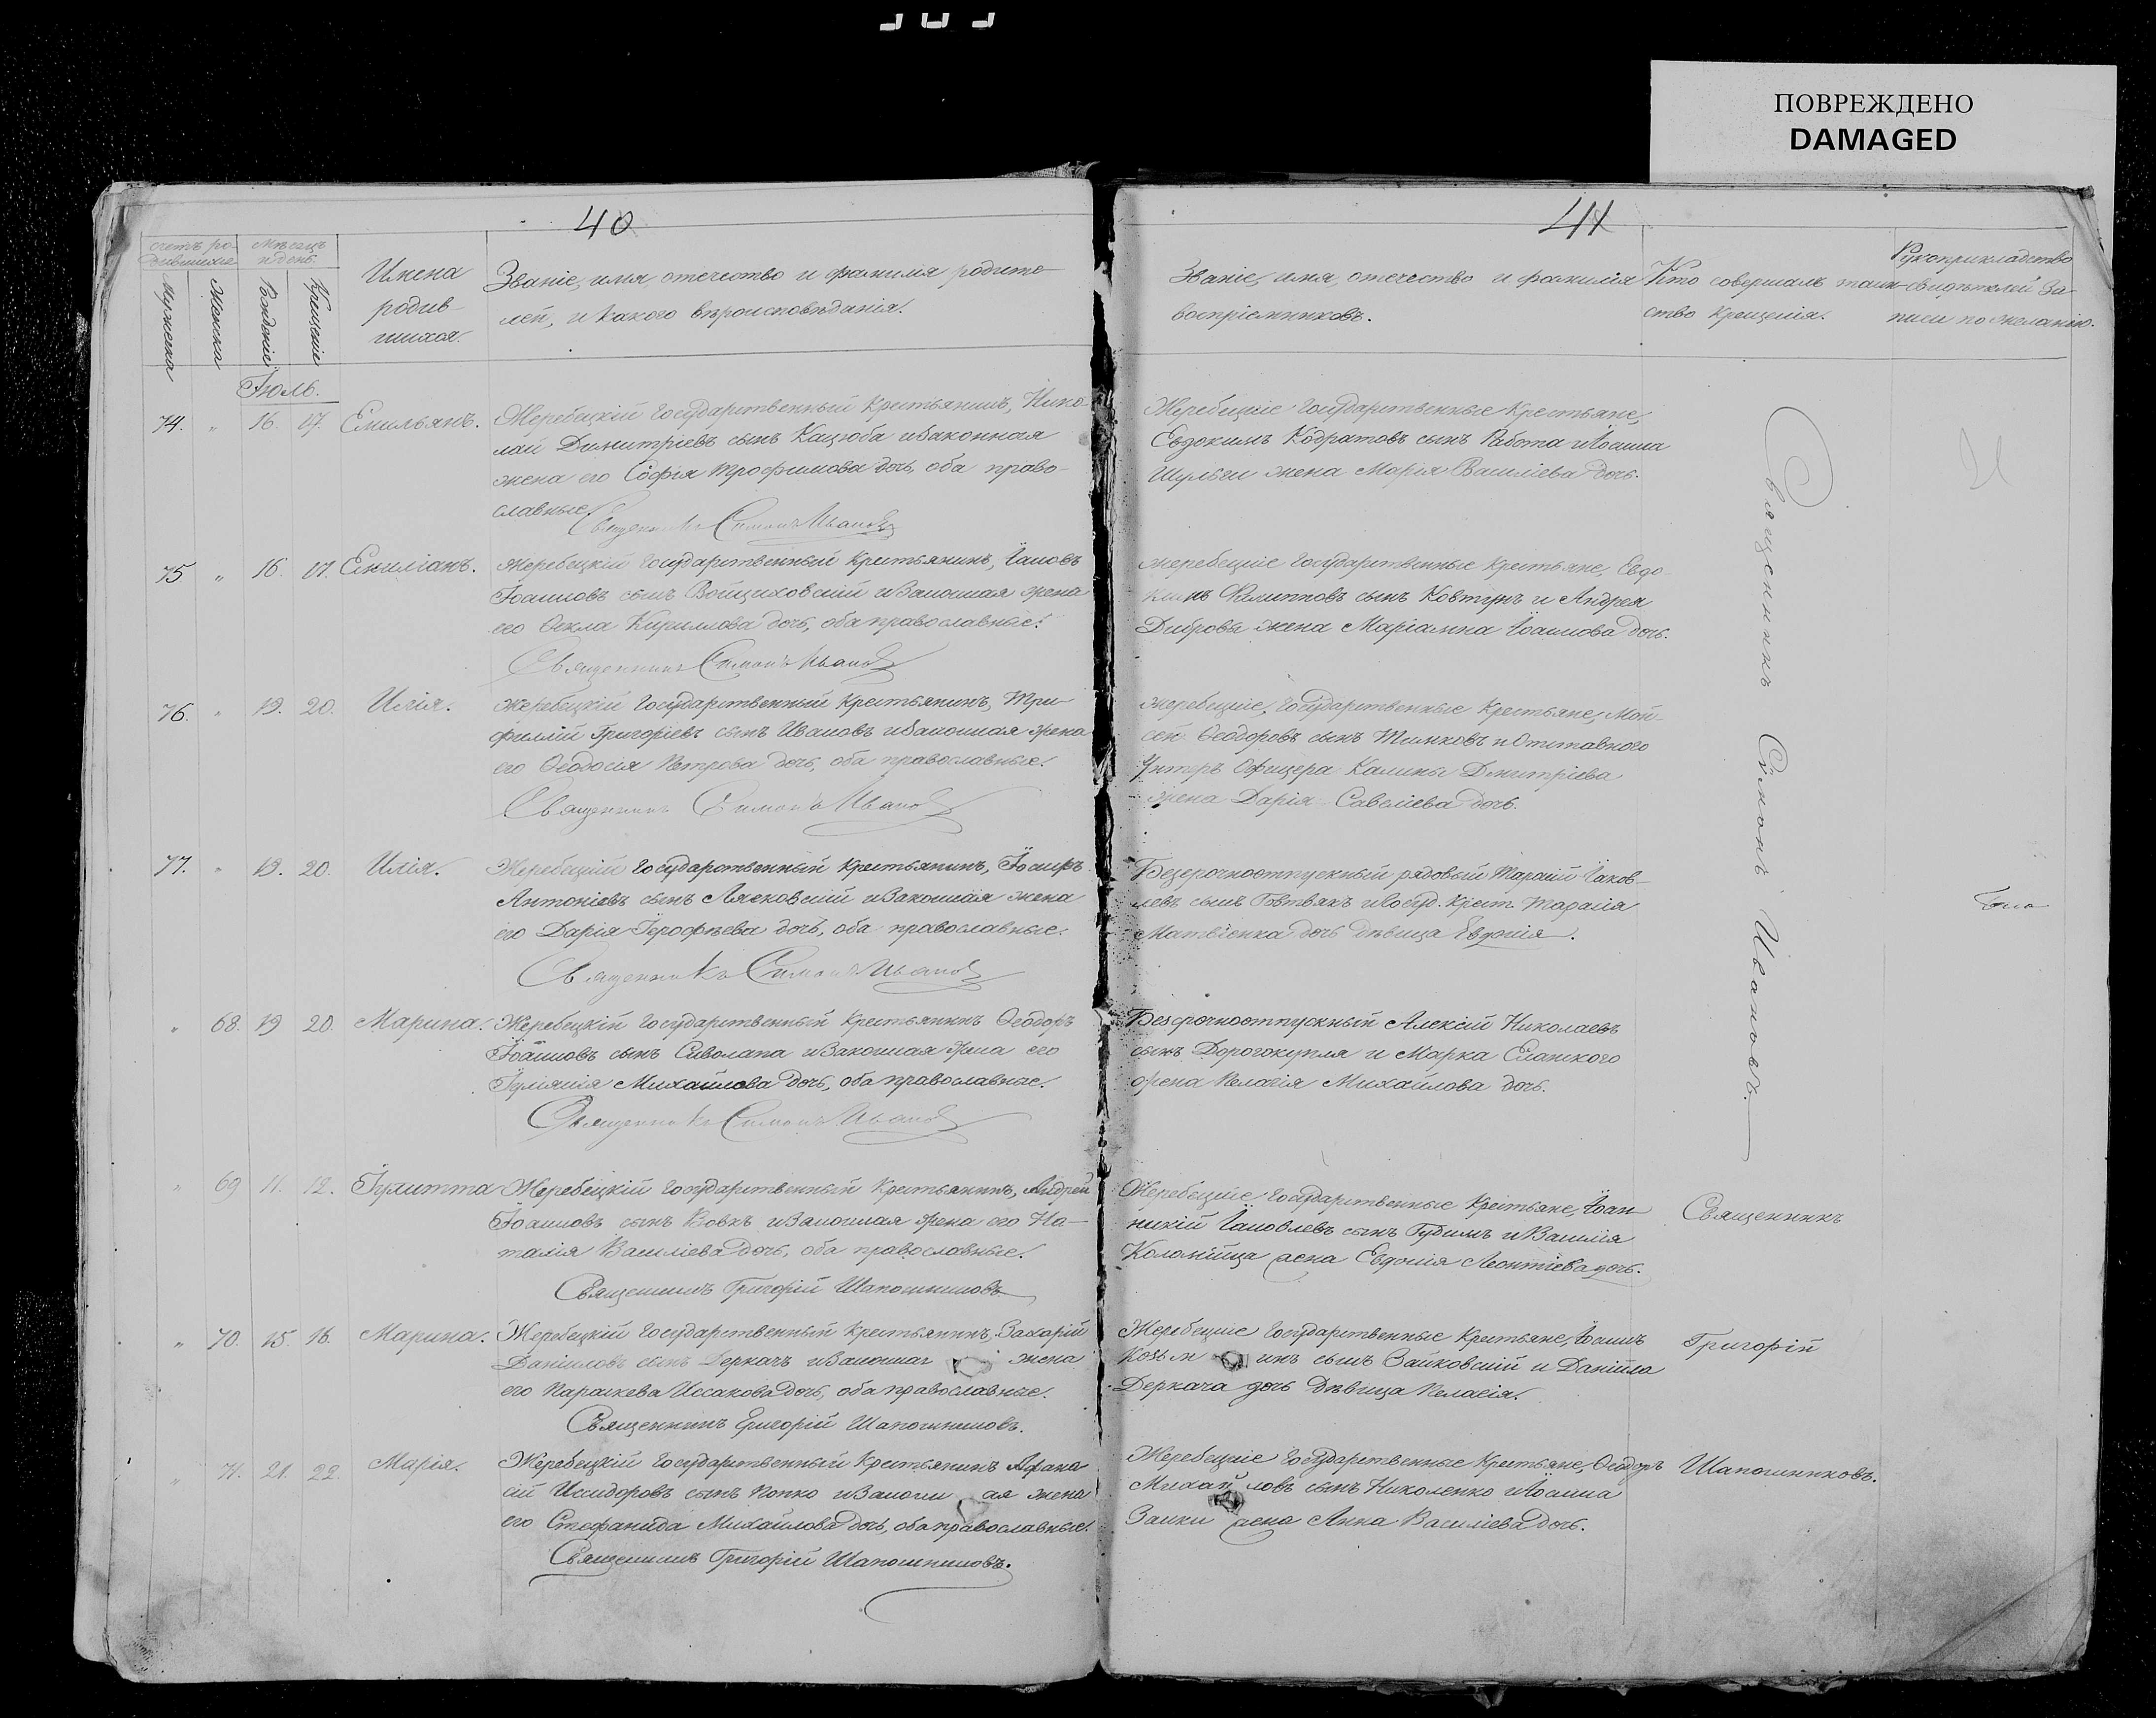 ПОВРЕЖДЕНО
DAMAGED
40
счетъ ро-
дившихся
Мѣсяцъ
и день.
Мужеска
Женска
Рожденіе
Крещеніе
Имена
родив-
шихся.
Званіе, имя, отечество и фамилія родите-
лей, и какого вѣроисповѣданія.
Іюль.
74. " 16. 17. Емильянъ. Жеребецкій государственный крестьянинъ, Нико-
лай Димитріевъ сынъ Кацюба и законная
жена его Софія Трофимова дочь, оба право-
славные.
Священникъ Симонъ Иванов
75 " 16. 17. Емиліанъ. Жеребецкій государственный крестьянинъ, Іаковъ
Іоанновъ сынъ Войциховскій и законная жена
его Ѳекла Кириллова дочь, оба православные.
Священникъ Симонъ Иванов
76. " 19. 20. Илія. Жеребецкій государственный крестьянинъ, Три-
филлій Григоріевъ сынъ Ивановъ и законная жена
его Ѳеодосія Петрова дочь, оба православные.
Священникъ Симонъ Иванов
77. " 19. 20. Илія. Жеребецкій государственный крестьянинъ, Іосифъ
Антоніевъ сынъ Лясковскій и законная жена
его Дарія Іерофѣева дочь, оба православные.
Священникъ Симонъ Иванов
" 68. 19 20. Марина. Жеребецкій государственный крестьянинъ Ѳеодоръ
Іоанновъ сынъ Сиволапа и законная жена его
Іуліанія Михайлова дочь, оба православные.
Священникъ Симонъ Иванов
" 69 11. 12. Іулитта Жеребецкій государственный крестьянинъ, Андрей
Іоанновъ сынъ Вовкъ и законная жена его На-
талія Василіева дочь, оба православные.
Священникъ Григорій Шапошниковъ
" 70. 15. 16. Марина. Жеребецкій государственный крестьянинъ, Захарій
Даніиловъ сынъ Деркачъ и законная жена
его Параскева Иссакова дочь, оба православные.
Священникъ Григорій Шапошниковъ.
" 71. 21. 22. Марія. Жеребецкій государственный крестьянинъ Афана
сій Исидоровъ сынъ Попко и законн ая жена
его Стефанида Михайлова дочь, оба православные.
Священникъ Григорій Шапошниковъ.
41
Званіе, имя, отечество и фамилія
воспріемниковъ.
Кто совершалъ таин-
ство крещенія.
Рукоприкладство
свидѣтелей за-
писи по желанію.
Жеребецкіе государственные крестьяне,
Евдокимъ Кодратовъ сынъ Работа и Іоанна
Шульги жена Марія Василіева дочь.
Жеребецкіе государственные крестьяне, Евдо-
кимъ Филипповъ сынъ Ковтунъ и Андрея
Дибровы жена Маріамна Іоаннова дочь.
Жеребецкіе, государственные крестьяне, Мой-
сей Ѳеодоровъ сынъ Тимковъ и Отставного
Унтеръ Офицера Калины Дмитріева
жена Дарія Савеліева дочь.
Безсрочноотпускный рядовый Тарасій Іаков-
левъ сынъ Говтвянъ и Госуд. Крест. Тарасія
Матвѣенка дочь дѣвица Евдокія.
Безсрочноотпускный Алексій Николаевъ
сынъ Дорогокупля и Марка Сланского
жена Пелагія Михайлова дочь.
Жеребецкіе государственные крестьяне, Іоан-
никій Іаковлевъ сынъ Губинъ и Василія
Коломійца жена Евдокія Леонтіева дочь.
Жеребецкіе государственные крестьяне, Іоаннъ
Козьм инъ сынъ Зайковскій и Даніила
Деркача дочь дѣвица Пелагія.
Жеребецкіе государственные крестьяне, Ѳеодоръ
Михай ловъ сынъ Николенко и Іоанна
Заики жена Анна Василіева дочь.
Священникъ Симонъ Ивановъ.
Священникъ
Григорій
Шапошниковъ.